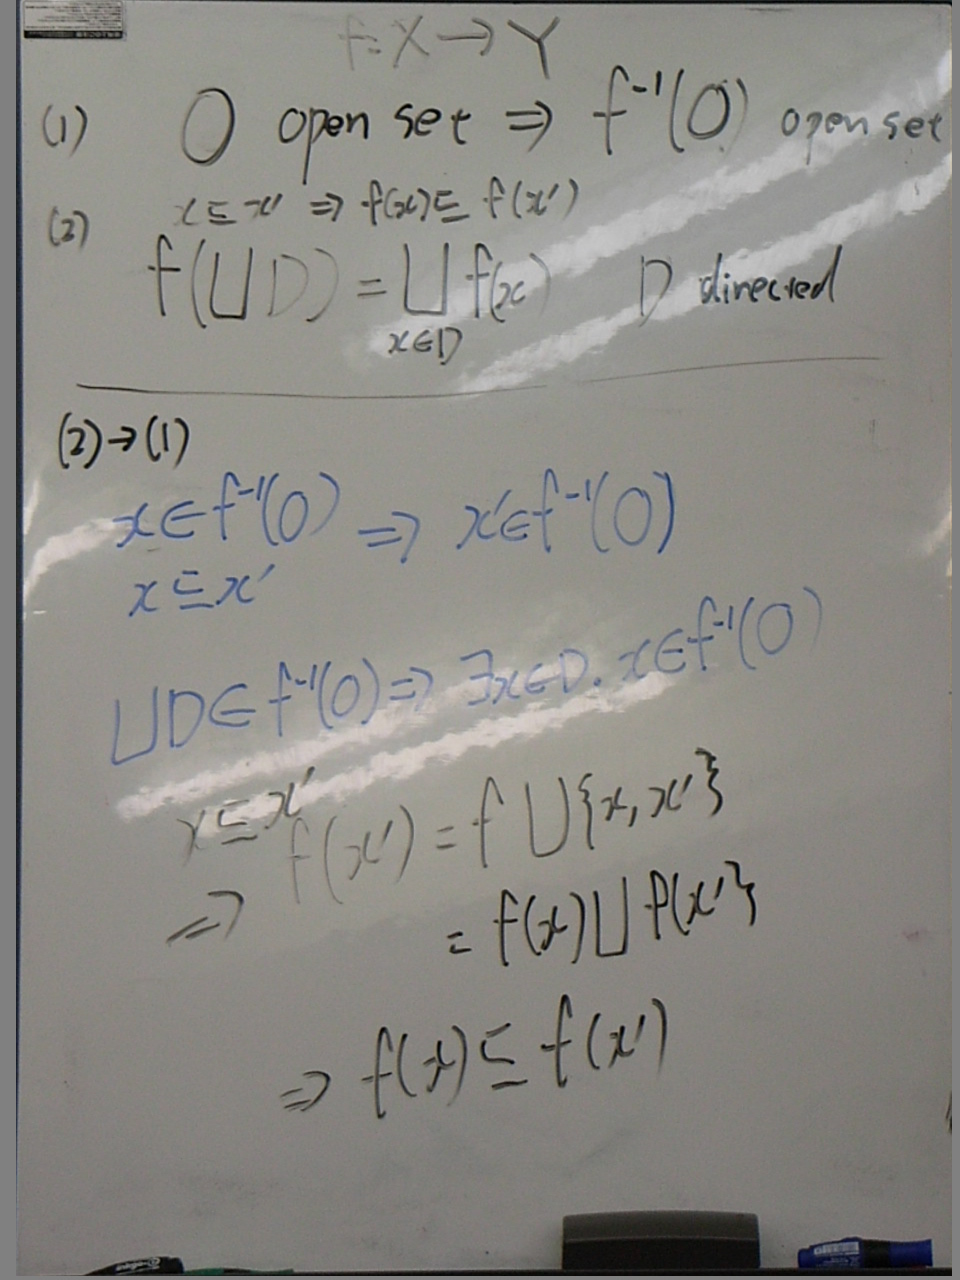 f: X → Y
(1) O open set ⇒ f⁻¹(O) open set
(2) x ⊑ x' ⇒ f(x) ⊑ f(x')
f(⊔D) = ⊔ f(x) D directed
x∈D
(2)→(1)
x ∈ f⁻¹(O) ⇒ x' ∈ f⁻¹(O)
x ⊑ x'
⊔D ∈ f⁻¹(O) ⇒ ∃x∈D. x∈f⁻¹(O)
x ⊑ x'
⇒ f(x') = f ⊔{x, x'}
= f(x) ⊔ f(x'}
⇒ f(x) ⊑ f(x')